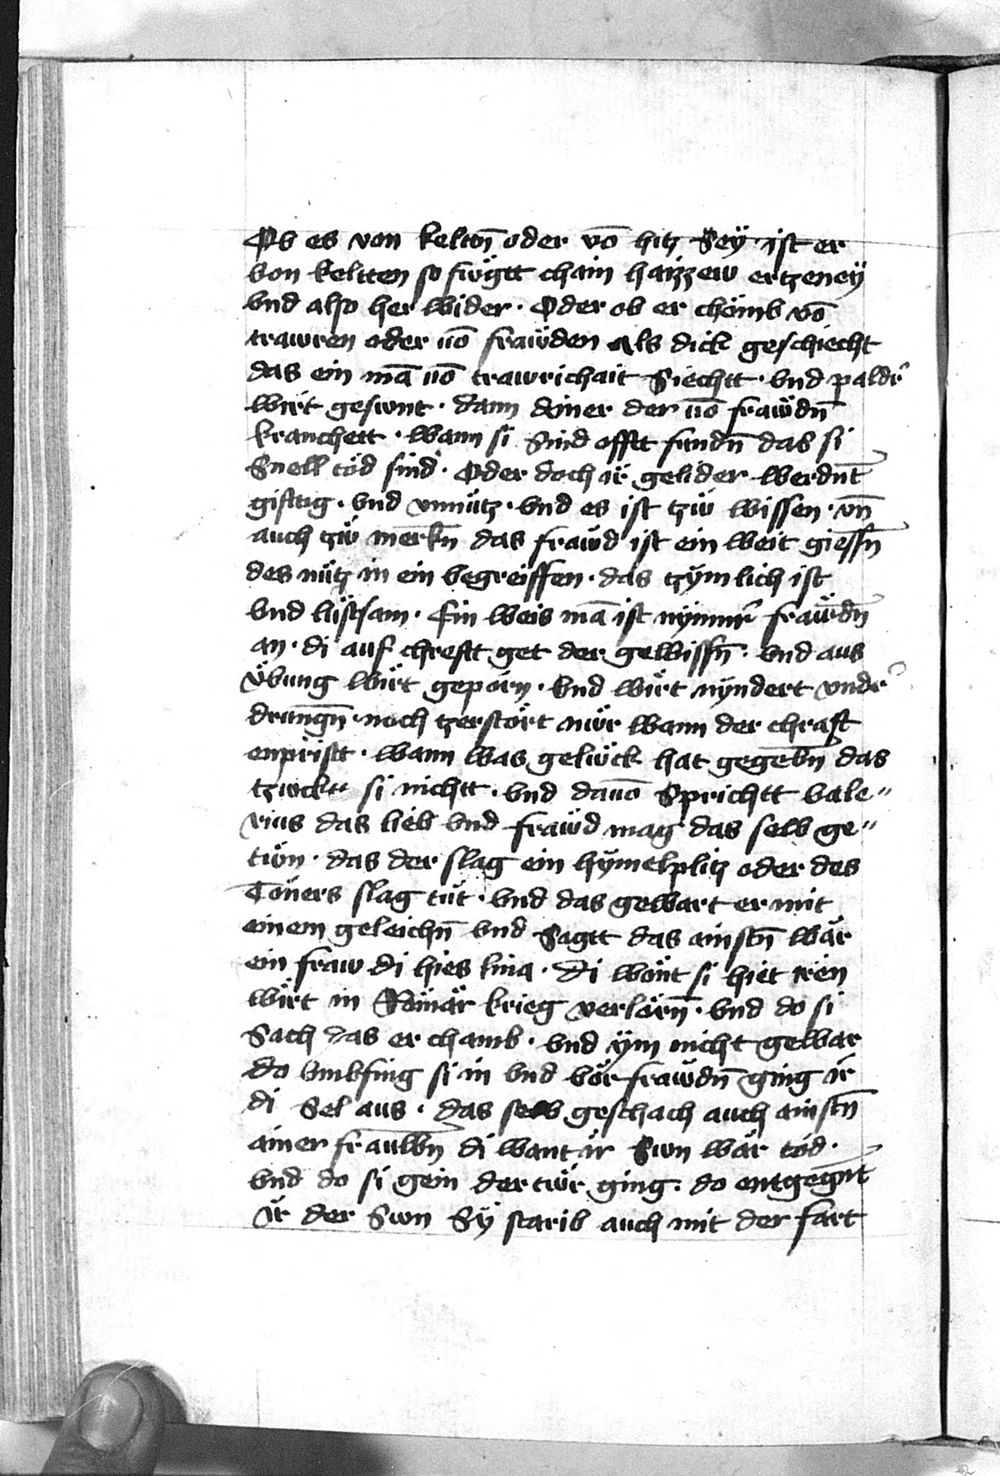 Ob es von keltn̄ oder vō hitz Seÿ ist er
von keltten so fwͤgtt chain haizzew ertzeneÿ
vnd also her wider · Oder ob er chömb vō
trawren oder vō frawͤden Als dick geschiecht
das ein mā vō trawrichait Siechtt · vnd palder
wirt gesunt · dann ainer der vō frawͤdn̄
kranchett · wann si Sind offtt fundn̄ das si
Snell töd sind · Oder doch ir gelider werdnt̄
gifttig · vnd vnnütz · vnd es ist tzw̋ wissen · vn̄
auch tzw̋ merkn̄ das frawͤd ist ein weit giessn̄
des nütz in ein begreiffen · das tzÿmlich ist
vnd lüstsam · Ein weis mā ist nÿmmer frawͤdn̄
an · di auf chrefft get der gewissn̄ · vnd aus
v̈bung wirt geporn · vnd wirt nÿndert vnder
drungn̄ · noch tzerstört nwͤr wann der chraft
enpristt · wann was gelwͤck hat gegebn̄ das
tzwckt si nichtt · vnd davō Sprichtt vale〃
rius das lieb vnd frawͤd mag das selb ge〃
twͤn · das der slag ein hÿmelplitz oder des
Toners slag tüt · vnd das gewart er mit
einem geleichn̄ vnd Sagtt das ainstn̄ wär
ein fraw di hies lina · Di wönt si hiet iren
wirt in Römär krieg verlorn̄ · vnd do si
Sach das er chamb · vnd ÿm nicht gewar
do vmbfing si in vnd vör frawͤdn̄ ging ir
di Sel aus · das selb geschach auch ainstn̄
ainer frauwn̄ di want ir Swn wär töd ·
vnd do si gein der twͤr ging · do entgegnt̄
ir der Swn Sÿ starib auch mit der fart